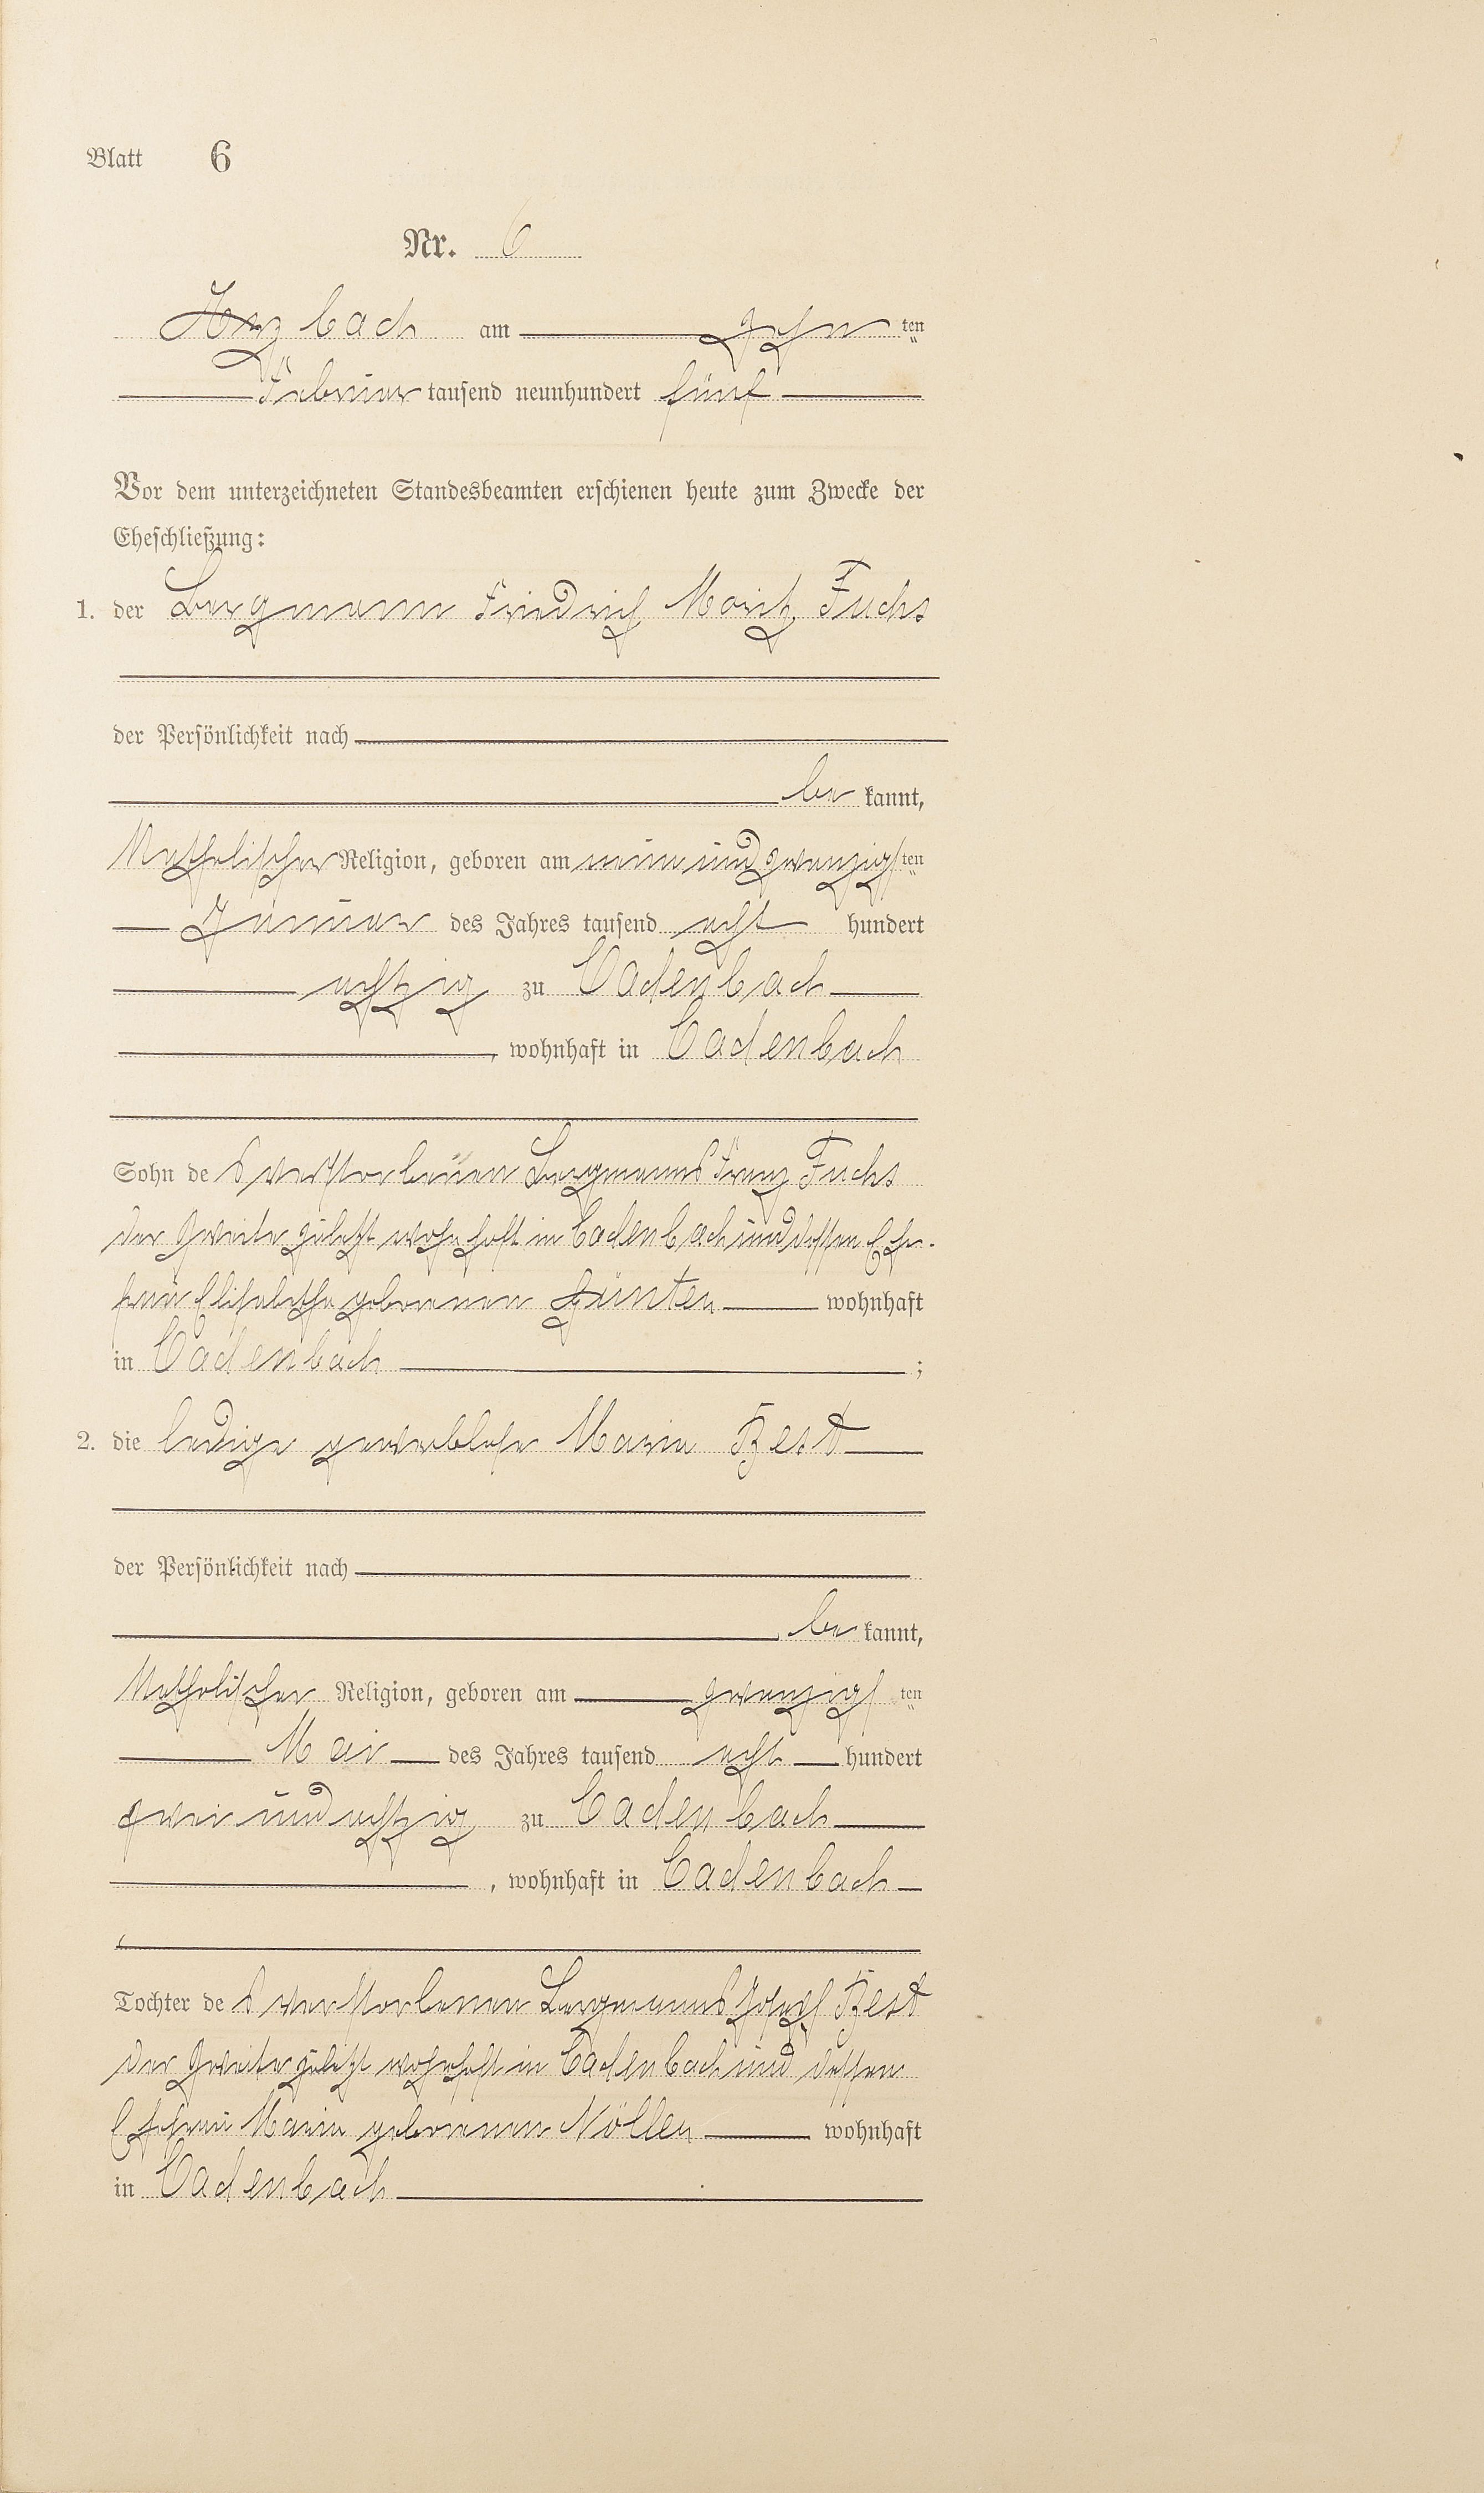 Blatt 6
Nr. 6
Arzbach am zehn ten
Februar tausend neunhundert fünf
Vor dem unterzeichneten Standesbeamten erschienen heute zum Zwecke der
Eheschließung:
1. der Bergmann Friedrich Moritz Fuchs
der Persönlichkeit nach
be kannt,
katholischer Religion, geboren am neunundzwanzigs ten
Januar des Jahres tausend acht hundert
achtzig zu Cadenbach
, wohnhaft in Cadenbach
Sohn de s verstorbenen Bergmanns Franz Fuchs
der Zweite zuletzt wohnhaft in Cadenbach und dessen Ehe-
frau Elisabetha geborenen Günter wohnhaft
in Cadenbach ;
2. die ledige gewerblose Maria Best
der Persönlichkeit nach
be kannt,
katholischer Religion, geboren am zwanzigs ten
Mai des Jahres tausend acht hundert
zwei und achtzig zu Cadenbach
, wohnhaft in Cadenbach
Tochter de s verstorbenen Bergmanns Josef Best
der Zweite zuletzt wohnhaft in Cadenbach und dessen
Ehefrau Maria geborenen Nöllen wohnhaft
in Cadenbach